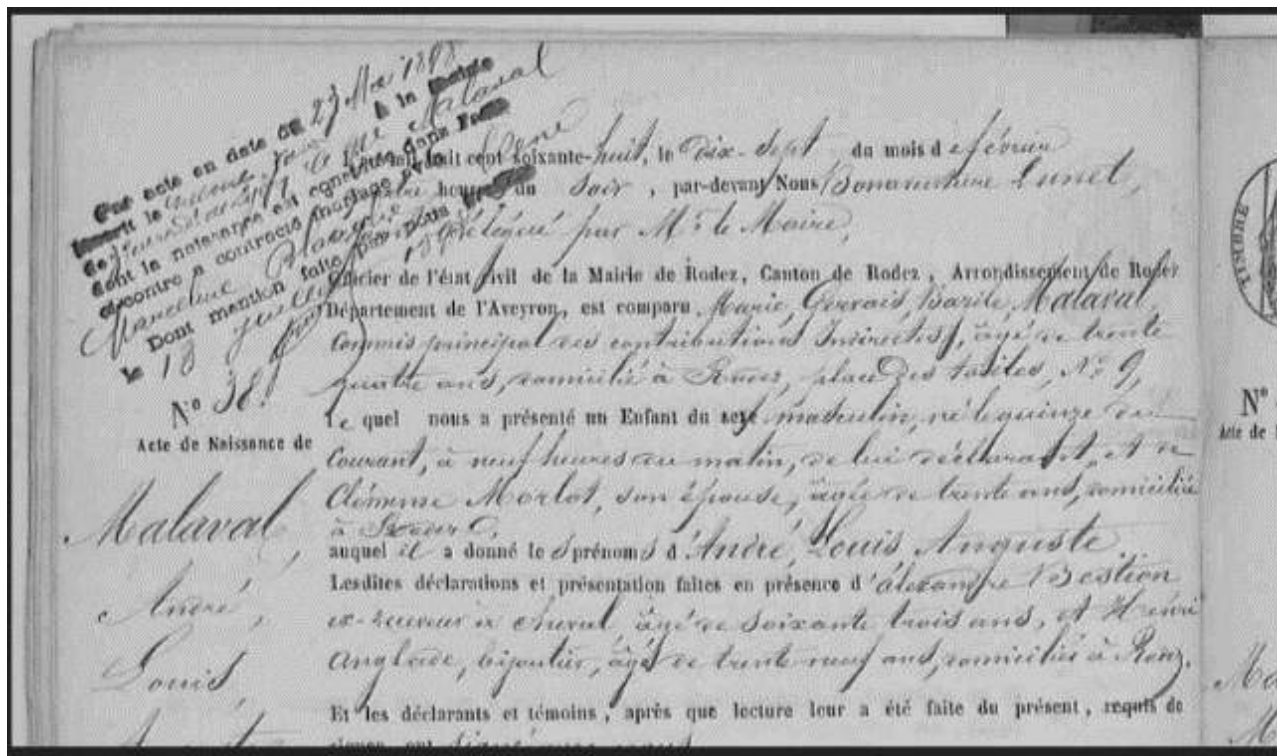 Par acte en date du 27 Mai 1898
inscrit le même jour à la Mairie
Malaval
dont la naissance est constatée dans
ci-contre a contracté mariage avec
Dont mention faite par nous
le 18 Juillet 1898
L'an mil huit cent soixante-huit, le dix-sept du mois de février
heures du soir, par-devant Nous Bonaventure Lunet,
délégué par Mr le Maire,
Officier de l'état civil de la Mairie de Rodez, Canton de Rodez, Arrondissement de Rodez
Département de l'Aveyron, est comparu Marie, Gervais, Basile Malaval,
Commis principal des contributions Indirectes, âgé de trente
quatre ans, domicilié à Rodez, place des Toiles, No 9,
Le quel nous a présenté un Enfant du sexe masculin, né le quinze du
Courant, à neuf heures du matin, de lui déclarant, et de
Clémence Morlot, son épouse, âgée de trente ans, domiciliée
à Rodez
auquel il a donné les prénoms d'André, Louis, Auguste.
Lesdites déclarations et présentation faites en présence d'alexandre Bestion
ex-receveur à cheval, âgé de soixante trois ans, et Henri
Anglade, bijoutier, âgé de trente neuf ans, domiciliés à Rodez.
Et les déclarants et témoins, après que lecture leur a été faite du présent, requis de
signer, ont signé avec nous
No 38.
Acte de Naissance de
Malaval,
André,
Louis,
Auguste
TIMBRE
No
Acte de